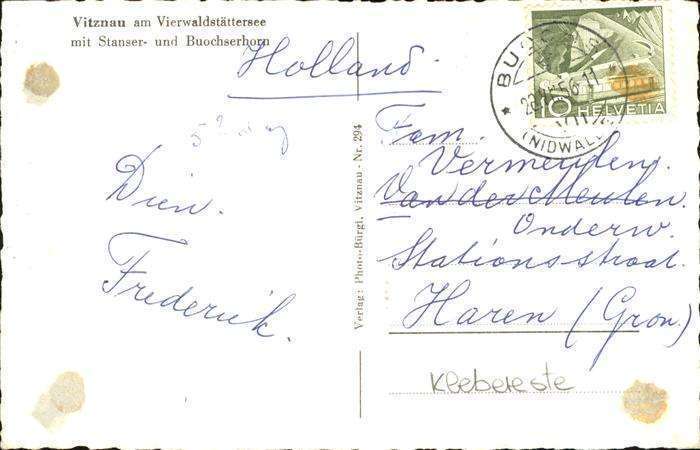 Vitznau am Vierwaldstättersee
mit Stanser- und Buochserhorn
Holland.
Dien.
Frederik.
Verlag: Photo-Bürgi, Vitznau - Nr. 294
10 HELVETIA
(NIDWALD
Fam.
Vermeulen.
Van der Meulen.
Onderw.
Stationsstraat.
Haren (Gron.)
Klebereste